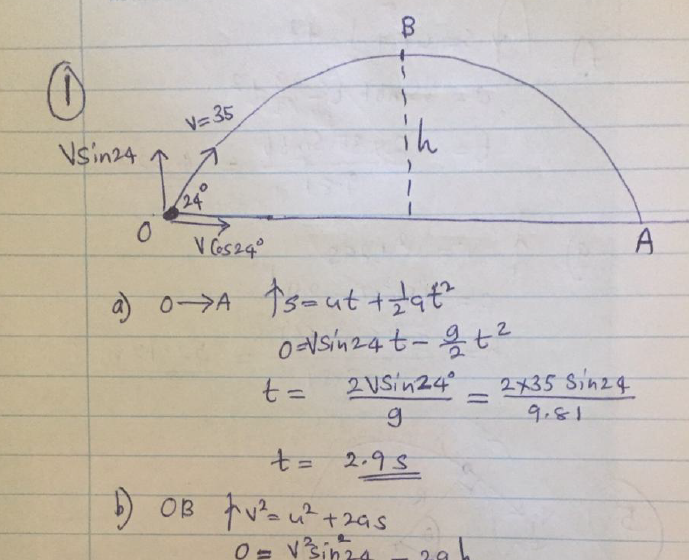 ①
B
V=35
VSin24
h
24°
O
VCos24°
A
a) O→A ↑s=ut+½at²
0=VSin24 t - g/2 t²
t = 2VSin24°/g = 2×35 Sin24/9.81
t = 2.9 s
b) OB ↑v²=u²+2as
0 = V²Sin²24 - 2gh